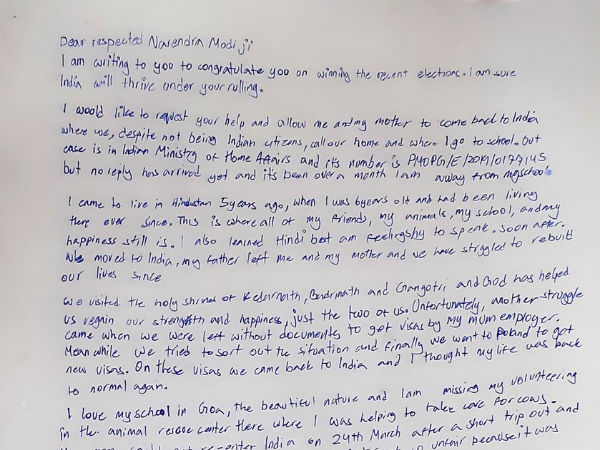 Dear respected Narendra Modi ji
I am writing to you to congratulate you on winning the recent elections. I am sure
India will thrive under your rulling.
I would like to request your help and allow me and my mother to come back to India
where we, despite not being Indian citizens, call our home and where I go to school. Our
case is in Indian Ministry of Home Affairs and its number is PMOPG/E/2019/0177145
but no reply has arrived yet and it's been over a month I am away from my school.
I came to live in Hindustan 5 years ago, when I was 6 years old and had been living
there ever since. This is where all of my friends, my animals, my school, and my
happiness still is. I also learned Hindi but am feeling shy to speak. Soon after
we moved to India, my father left me and my mother and we have struggled to rebuild
our lives since
We visited the holy shrines of Kedarnath, Badrinath and Gangotri and God has helped
us regain our strength and happiness, just the two of us. Unfortunately, another struggle
came when we were left without documents to get visas by my mum employer.
Meanwhile we tried to sort out the situation and finally we went to Poland to get
new visas. On these visas we came back to India and I thought my life was back
to normal again.
I love my school in Goa, the beautiful nature and I am missing my volunteering
in the animal rescue center there where I was helping to take care for cows.
re-enter India on 24th March after a short trip out and
unfair because it was